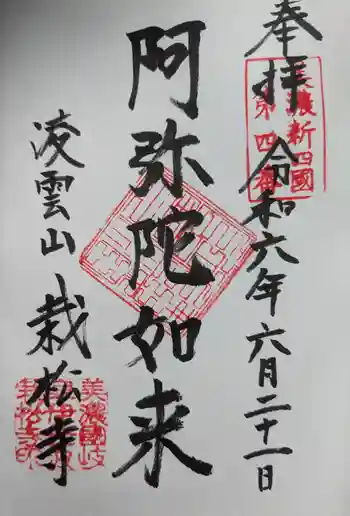 奉拝
令和六年六月二十一日
美濃新四國
第四番
阿弥陀如来
凌雲山
栽松寺
美濃國